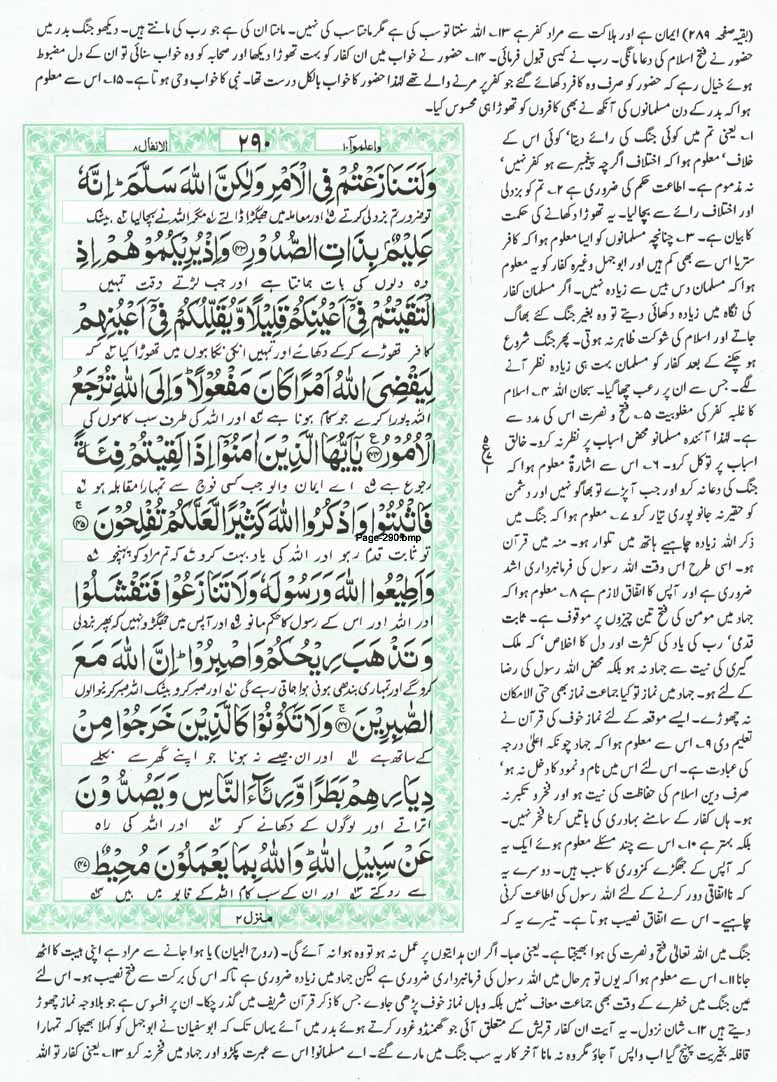 (بقیہ صفحہ ۲۸۹) ایمان ہے اور ہلاکت سے مراد کفر ہے ۱۳؎ اللہ سنتا تو سب کی ہے مگر مانتا سب کی نہیں۔ مانتا ان کی ہے جو رب کی مانتے ہیں۔ دیکھو جنگ بدر میں
حضور نے فتح اسلام کی دعا مانگی۔ رب نے کیسی قبول فرمائی۔ ۱۴؎ حضور نے خواب میں ان کفار کو بہت تھوڑا دیکھا اور صحابہ کو وہ خواب سنائی تو ان کے دل مضبوط
ہوئے خیال رہے کہ حضور کو صرف وہ کافر دکھائے گئے جو کفر پر مرنے والے تھے لہٰذا حضور کا خواب بالکل درست تھا۔ نبی کا خواب وحی ہوتا ہے۔ ۱۵؎ اس سے معلوم
ہوا کہ بدر کے دن مسلمانوں کی آنکھ نے بھی کافروں کو تھوڑا ہی محسوس کیا۔
واعلموآ ۱۰
۲۹۰
الانفال ۸
وَلَتَنَازَعْتُمْ فِى الْاَمْرِ وَلٰكِنَّ اللّٰهَ سَلَّمَ ؕ اِنَّهٗ
تو ضرور تم بزدلی کرتے اور معاملہ میں جھگڑا ڈالتے مگر اللہ نے بچا لیا بیشک
عَلِيْمٌۢ بِذَاتِ الصُّدُوْرِ ﴿۴۳﴾ وَاِذْ يُرِيْكُمُوْهُمْ اِذِ
وہ دلوں کی بات جانتا ہے اور جب لڑتے وقت تمہیں
الْتَقَيْتُمْ فِىْۤ اَعْيُنِكُمْ قَلِيْلًا وَّيُقَلِّلُكُمْ فِىْۤ اَعْيُنِهِمْ
کافر تھوڑے کرکے دکھائے اور تمہیں انکی نگاہوں میں تھوڑا کیا کہ
لِيَقْضِىَ اللّٰهُ اَمْرًا كَانَ مَفْعُوْلًا ؕ وَاِلَى اللّٰهِ تُرْجَعُ
اللہ پورا کرے جو کام ہونا ہے اور اللہ کی طرف سب کاموں کی
الْاُمُوْرُ ﴿۴۴﴾ يٰۤاَيُّهَا الَّذِيْنَ اٰمَنُوْۤا اِذَا لَقِيْتُمْ فِئَةً
رجوع ہے اے ایمان والو جب کسی فوج سے تمہارا مقابلہ ہو
فَاثْبُتُوْا وَاذْكُرُوا اللّٰهَ كَثِيْرًا لَّعَلَّكُمْ تُفْلِحُوْنَ ﴿۴۵﴾
Page-290.bmp
تو ثابت قدم رہو اور اللہ کی یاد بہت کرو کہ تم مراد کو پہنچو
وَاَطِيْعُوا اللّٰهَ وَرَسُوْلَهٗ وَلَا تَنَازَعُوْا فَتَفْشَلُوْا
اور اللہ اور اس کے رسول کا حکم مانو اور آپس میں جھگڑو نہیں کہ پھر بزدلی
وَتَذْهَبَ رِيْحُكُمْ وَاصْبِرُوْا ؕ اِنَّ اللّٰهَ مَعَ
کروگے اور تمہاری بندھی ہوئی ہوا جاتی رہے گی اور صبر کرو بیشک اللہ صبر کرنیوالوں
الصّٰبِرِيْنَ ﴿۴۶﴾ وَلَا تَكُوْنُوْا كَالَّذِيْنَ خَرَجُوْا مِنْ
کے ساتھ ہے اور ان جیسے نہ ہونا جو اپنے گھر سے نکلے
دِيَارِهِمْ بَطَرًا وَّرِئَآءَ النَّاسِ وَيَصُدُّوْنَ
اتراتے اور لوگوں کے دکھانے کو اور اللہ کی راہ
عَنْ سَبِيْلِ اللّٰهِ ؕ وَاللّٰهُ بِمَا يَعْمَلُوْنَ مُحِيْطٌ ﴿۴۷﴾
سے روکتے اور ان کے سب کام اللہ کے قابو میں ہیں
منزل ۲
۱؎ یعنی تم میں کوئی جنگ کی رائے دیتا' کوئی اس کے
خلاف' معلوم ہوا کہ اختلاف اگرچہ پیغمبر سے ہو کفر نہیں'
نہ مذموم ہے۔ اطاعت حکم کی ضروری ہے ۲؎ تم کو بزدلی
اور اختلاف رائے سے بچا لیا۔ یہ تھوڑا دکھانے کی حکمت
کا بیان ہے۔ ۳؎ چنانچہ مسلمانوں کو ایسا معلوم ہوا کہ کافر
ستر یا اس سے بھی کم ہیں اور ابو جہل وغیرہ کفار کو یہ معلوم
ہوا کہ مسلمان دس بیس سے زیادہ نہیں۔ اگر مسلمان کفار
کی نگاہ میں زیادہ دکھائی دیتے تو وہ بغیر جنگ کئے بھاگ
جاتے اور اسلام کی شوکت ظاہر نہ ہوتی۔ پھر جنگ شروع
ہو چکنے کے بعد کفار کو مسلمان بہت ہی زیادہ نظر آنے
لگے۔ جس سے ان پر رعب چھا گیا۔ سبحان اللہ ۴؎ اسلام
کا غلبہ کفر کی مغلوبیت ۵؎ فتح و نصرت اس کی مدد سے
ہے۔ لہٰذا آئندہ مسلمانو محض اسباب پر نظر نہ کرو۔ خالق
اسباب پر توکل کرو۔ ۶؎ اس سے اشارۃً معلوم ہوا کہ
جنگ کی دعا نہ کرو اور جب آ پڑے تو بھاگو نہیں اور دشمن
کو حقیر نہ جانو پوری تیار کرو ۷؎ معلوم ہوا کہ جنگ میں
ذکر اللہ زیادہ چاہیے ہاتھ میں تلوار ہو۔ منہ میں قرآن
ہو۔ اسی طرح اس وقت اللہ رسول کی فرمانبرداری اشد
ضروری ہے اور آپس کا اتفاق لازم ہے ۸؎ معلوم ہوا کہ
جہاد میں مومن کی فتح تین چیزوں پر موقوف ہے۔ ثابت
قدمی' رب کی یاد کی کثرت اور دل کا اخلاص' کہ ملک
گیری کی نیت سے جہاد نہ ہو بلکہ محض اللہ رسول کی رضا
کے لئے ہو۔ جہاد میں نماز تو کیا جماعت نماز بھی حتی الامکان
نہ چھوڑے۔ ایسے موقعہ کے لئے نماز خوف کی قرآن نے
تعلیم دی ۹؎ اس سے معلوم ہوا کہ جہاد چونکہ اعلیٰ درجہ
کی عبادت ہے۔ اس لئے اس میں نام و نمود کا دخل نہ ہو'
صرف دین اسلام کی حفاظت کی نیت ہو اور فخر و تکبر نہ
ہو۔ ہاں کفار کے سامنے بہادری کی باتیں کرنا فخر نہیں۔
بلکہ بہتر ہے ۱۰؎ اس سے چند مسئلے معلوم ہوئے ایک یہ
کہ آپس کے جھگڑے کمزوری کا سبب ہیں۔ دوسرے یہ
کہ نااتفاقی دور کرنے کے لئے اللہ رسول کی اطاعت کرنی
چاہیے۔ اس سے اتفاق نصیب ہوتا ہے۔ تیسرے یہ کہ
جنگ میں اللہ تعالیٰ فتح و نصرت کی ہوا بھیجتا ہے۔ یعنی صبا۔ اگر ان ہدایتوں پر عمل نہ ہو تو وہ ہوا نہ آئے گی۔ (روح البیان) یا ہوا جانے سے مراد ہے اپنی ہیبت کا اٹھ
جانا ۱۱؎ اس سے معلوم ہوا کہ یوں تو ہر حال میں اللہ رسول کی فرمانبرداری ضروری ہے لیکن جہاد میں زیادہ ضروری ہے تاکہ اس کی برکت سے فتح نصیب ہو۔ اس لئے
عین جنگ میں خطرے کے وقت بھی جماعت معاف نہیں بلکہ وہاں نماز خوف پڑھی جاوے جس کا ذکر قرآن شریف میں گذر چکا۔ ان پر افسوس ہے جو بلاوجہ نماز چھوڑ
دیتے ہیں ۱۲؎ شان نزول۔ یہ آیت ان کفار قریش کے متعلق آئی جو گھمنڈو غرور کرتے ہوئے بدر میں آئے یہاں تک کہ ابو سفیان نے ابو جہل کو کہلا بھیجا کہ تمہارا
قافلہ بخیریت پہنچ گیا اب واپس آ جاؤ مگر وہ نہ مانا آخر کار یہ سب جنگ میں مارے گئے۔ اے مسلمانو! اس سے عبرت پکڑو اور جہاد میں فخر نہ کرو ۱۳؎ یعنی کفار تو اللہ